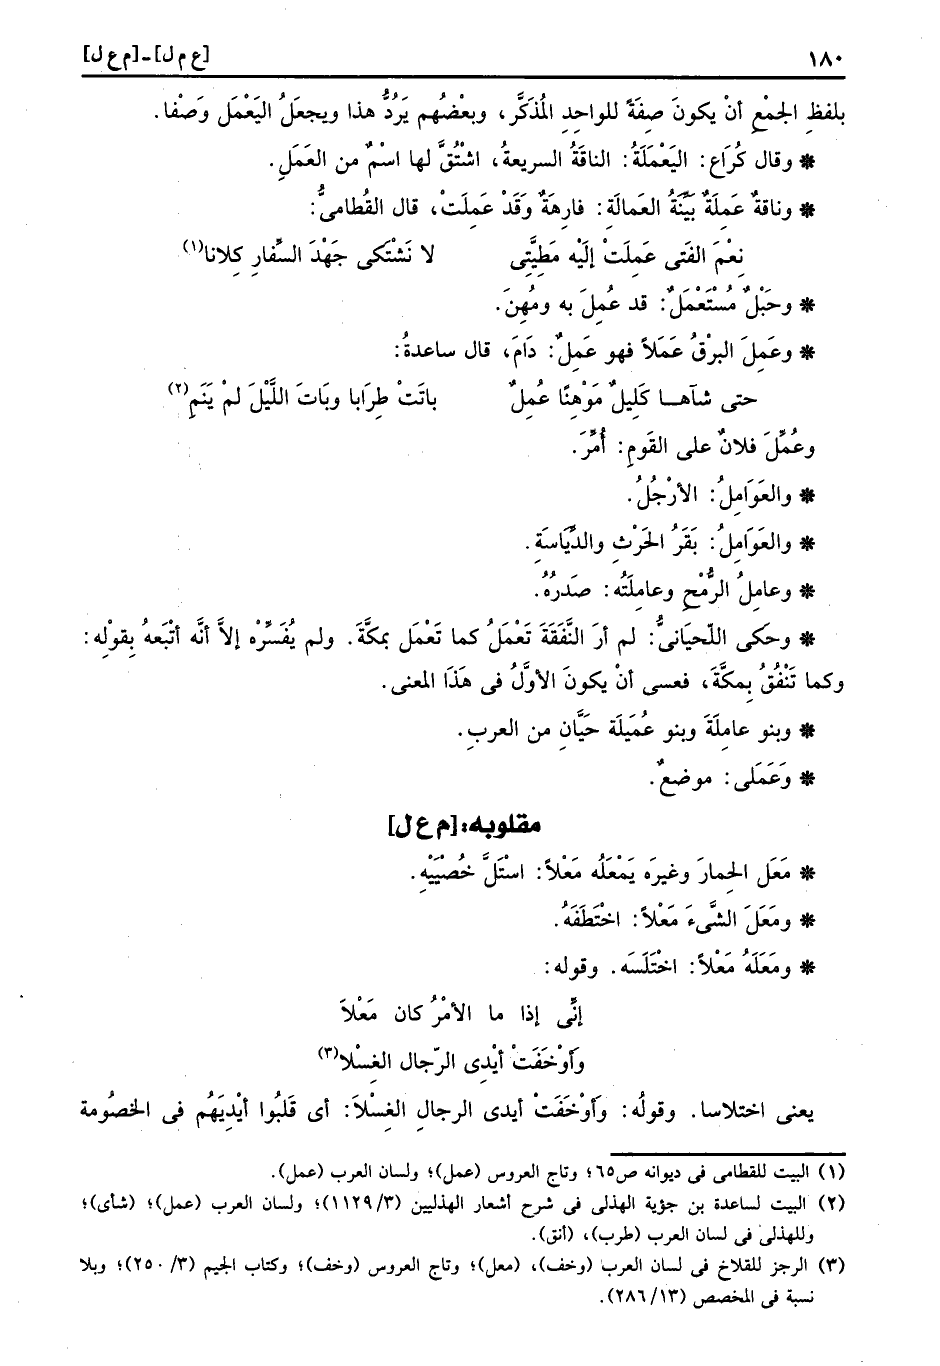 ١٨٠ [ع م ل]-[م ع ل]
بلفظِ الجمْعِ أنْ يكونَ صِفَةً للواحِدِ المُذَكَّرِ، وبعْضُهم يَرُدُّ هذا ويجعلُ اليَعْمَل وَصْفا.
* وقال كُرَاع: اليَعْمَلَةُ: الناقَةُ السريعةُ، اشْتُقَّ لها اسْمٌ من العَمَلِ.
* وناقةٌ عَمِلةٌ بَيِّنَةُ العَمالَةِ: فارِهةٌ وَقَدْ عَمِلَتْ، قال القُطامىُّ:
نِعْمَ الفَتى عَمِلَتْ إلَيْهِ مَطِيَّتِى لا نَشْتَكى جَهْدَ السِّفارِ كِلانا(١)
* وحَبْلٌ مُسْتَعْمَلٌ: قد عُمِلَ به ومُهِنَ.
* وعَمِلَ البرْقُ عَمَلاً فهو عَمِلٌ: دَامَ، قال ساعدةُ:
حتى شآهــا كَلِيلٌ مَوْهِنًا عَمِلٌ باتَتْ طِرَابا وبَاتَ اللَّيْلَ لمْ يَنَمِ(٢)
وعُمِّلَ فلانٌ على القَومِ: أُمِّرَ.
* والعَوَامِلُ: الأرْجُلُ.
* والعَوَامِلُ: بَقَرُ الحَرْثِ والدِّيَاسَةِ.
* وعامِلُ الرُّمْحِ وعامِلَتُه: صَدرُهُ.
* وحَكى اللِّحيَانىُّ: لم أرَ النَّفَقَةَ تَعْمَلُ كما تَعْمَل بمكَّةَ. ولم يُفَسِّرْه إلاَّ أنَّه أتْبَعهُ بِقوْلهِ:
وكما تَنْفُقُ بِمكَّةَ، فعسى أنْ يكونَ الأوَّلُ فى هَذَا المعنى.
* وبنو عامِلَةَ وبنو عُمَيلَة حَيَّانِ من العربِ.
* وَعَمَلَى: موضعٌ.
مقلوبه: [م ع ل]
* مَعَل الحِمارَ وغيرَه يَمْعَلُه مَعْلاً: اسْتَلَّ خُصْيَيْهِ.
* ومَعَلَ الشَّىءَ مَعْلاً: اخْتَطَفَهُ.
* ومَعَلَهُ مَعْلاً: اخْتَلَسَه. وقوله:
إنِّى إذا ما الأمْرُ كان مَعْلاَ
وَأَوْخَفَتْ أيْدِى الرِّجالِ الغِسْلا(٣)
يعنى اختلاسا. وقولُه: وَأوْخَفَتْ أيدى الرجالِ الغِسْلاَ: أى قَلَبُوا أيْدِيَهُم فى الخصُومة
(١) البيت للقطامى فى ديوانه ص٦٥؛ وتاج العروس (عمل)؛ ولسان العرب (عمل).
(٢) البيت لساعدة بن جؤية الهذلى فى شرح أشعار الهذليين (٣/ ١١٢٩)؛ ولسان العرب (عمل)؛ (شأى)؛
وللهذلى فى لسان العرب (طرب)، (أنق).
(٣) الرجز للقلاخ فى لسان العرب (وخف)، (معل)؛ وتاج العروس (وخف)؛ وكتاب الجيم (٣/ ٢٥٠)؛ وبلا
نسبة فى المخصص (١٣/ ٢٨٦).